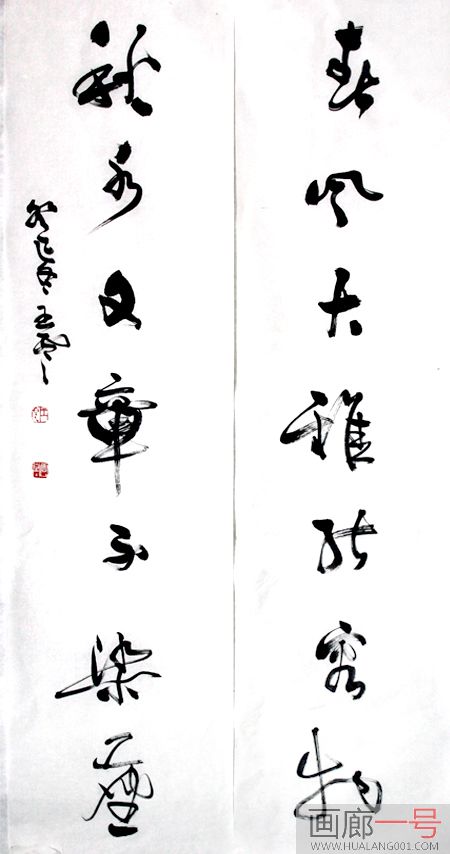 春风大雅能容物
秋水文章不染尘
癸巳冬王
画廊一号
WWW.HUALANG001.COM